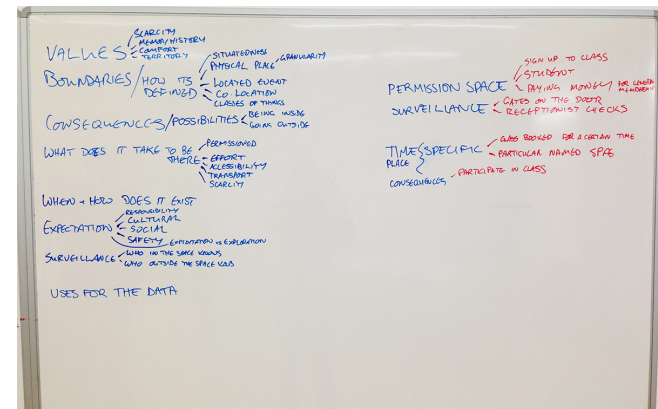 VALUES
SCARCITY
MEMORY/HISTORY
COMFORT
TERRITORY
BOUNDARIES/HOW ITS DEFINED
SITUATEDNESS
PHYSICAL PLACE
GRANULARITY
LOCATED EVENT
CO-LOCATION
CLASSES OF THINGS
CONSEQUENCES/POSSIBILITIES
BEING INSIDE
GOING OUTSIDE
WHAT DOES IT TAKE TO BE THERE
PERMISSIONED
EFFORT
ACCESSIBILITY
TRANSPORT
SCARCITY
WHEN + HOW DOES IT EXIST
EXPECTATION
RESPONSIBILITY
CULTURAL
SOCIAL
SAFETY
EXPLOITATION VS EXPLORATION
SURVEILLANCE
WHO IN THE SPACE KNOWS
WHO OUTSIDE THE SPACE KNOWS
USES FOR THE DATA
PERMISSION SPACE
SIGN UP TO CLASS
STUDENT
PAYING MONEY FOR GENERAL
MEMBERSHIP
SURVEILLANCE
GATES ON THE DOOR
RECEPTIONIST CHECKS
TIME
PLACE
SPECIFIC
CLASS BOOKED FOR A CERTAIN TIME
PARTICULAR NAMED SPACE
CONSEQUENCES
PARTICIPATE IN CLASS